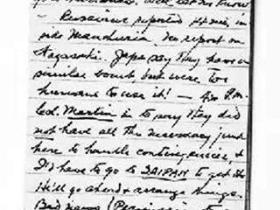 let them know
- Russians reported 14 mi. in-
side Manchuria. No report on
Nagasaki. Japs say they have a
similar bomb but were too
humane to use it! -
Col. Martin is to say they did
not have all the necessary junk
here to handle contingencies &
I'd have to go to SAIPAN to get the
He'll go ahead & arrange things.
Bad news!